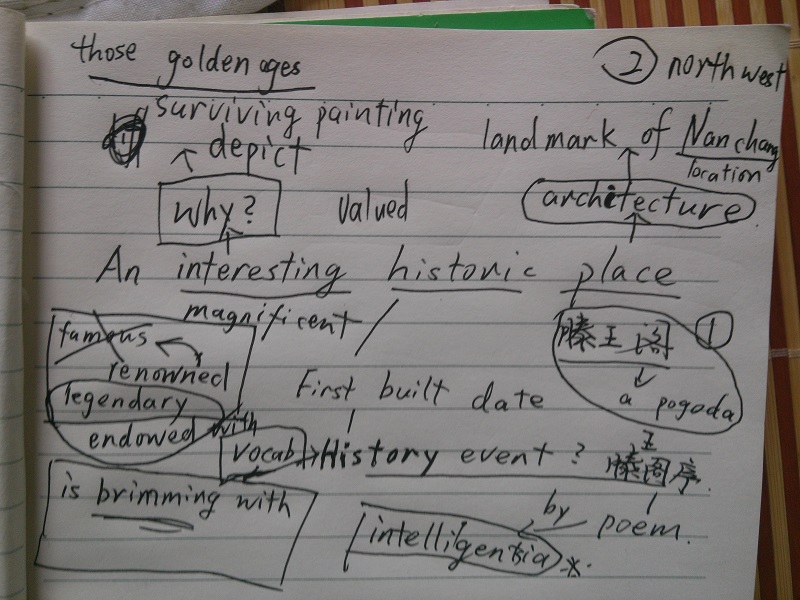 those golden ages
② northwest
surviving painting
depict
landmark of Nanchang
location
why?
valued
architecture
An interesting historic place
magnificent
famous
renowned
legendary
endowed with
滕王阁
①
a pogoda
First built date
vocab
History event?
王
滕阁序.
is brimming with
by poem.
intelligentsia *